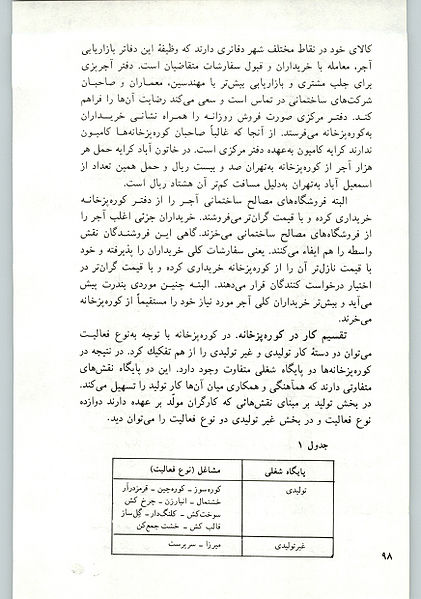 کالای خود در نقاط مختلف شهر دفاتری دارند که وظیفهٔ این دفاتر بازاریابی
آجر، معامله با خریداران و قبول سفارشات متقاضیان است. دفتر آجرپزی
برای جلب مشتری و بازاریابی بیش‌تر با مهندسین، معماران و صاحبان
شرکت‌های ساختمانی در تماس است و سعی می‌کند رضایت آن‌ها را فراهم
کند. دفتر مرکزی صورت فروش روزانه را همراه نشانی خریداران
به‌کوره‌پزخانه می‌فرستد. از آنجا که غالباً صاحبان کوره‌پزخانه‌ها کامیون
ندارند کرایه کامیون به‌عهده دفتر مرکزی است. در خاتون آباد کرایه حمل هر
هزار آجر از کوره‌پزخانه به‌تهران صد و بیست ریال و حمل همین تعداد از
اسمعیل آباد به‌تهران به‌دلیل مسافت کم‌تر آن هشتاد ریال است.
البته فروشگاه‌های مصالح ساختمانی آجر را از دفتر کوره‌پزخانه
خریداری کرده و با قیمت گران‌تر می‌فروشند. خریداران جزئی اغلب آجر را
از فروشگاه‌های مصالح ساختمانی می‌خرند. گاهی این فروشندگان نقش
واسطه را هم ایفاء می‌کنند. یعنی سفارشات کلی خریداران را پذیرفته و خود
با قیمت نازل‌تر آن را از کوره‌پزخانه خریداری کرده و با قیمت گران‌تر در
اختیار درخواست کنندگان قرار می‌دهند. البته چنین موردی بندرت پیش
می‌آید و بیش‌تر خریداران کلی آجر مورد نیاز خود را مستقیماً از کوره‌پزخانه
می‌خرند.
تقسیم کار در کوره‌پزخانه. در کوره‌پزخانه با توجه به‌نوع فعالیت
می‌توان دو دستهٔ کار تولیدی و غیر تولیدی را از هم تفکیک کرد. در نتیجه در
کوره‌پزخانه‌ها دو پایگاه شغلی متفاوت وجود دارد. این دو پایگاه نقش‌های
متفاوتی دارند که هم‌آهنگی و همکاری میان آن‌ها کار تولید را تسهیل می‌کند.
در بخش تولید بر مبنای نقش‌هائی که کارگران مولّد بر عهده دارند دوازده
نوع فعالیت و در بخش غیر تولیدی دو نوع فعالیت را می‌توان دید.
جدول ۱
پایگاه شغلی مشاغل (نوع فعالیت)
تولیدی کوره‌سوز - کوره‌چین - قرمزدرآر
خشتمال - انبارزن - چرخ کش
سوخت‌کش - کلنگ‌دار - گِل‌ساز
قالب کش - خشت جمع‌کن
غیرتولیدی میرزا - سرپرست
۹۸